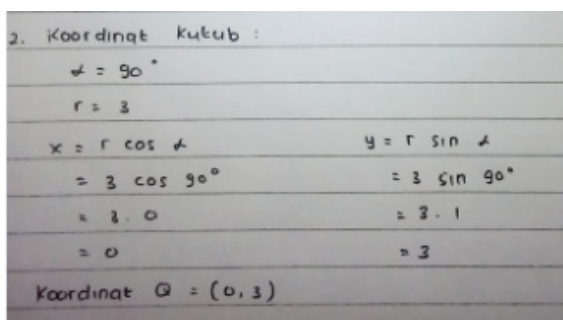 2. Koordinat Kutub :
α = 90°
r = 3
x = r cos α
= 3 cos 90°
= 3 . 0
= 0
y = r sin α
= 3 sin 90°
= 3 . 1
= 3
Koordinat Q = (0, 3)